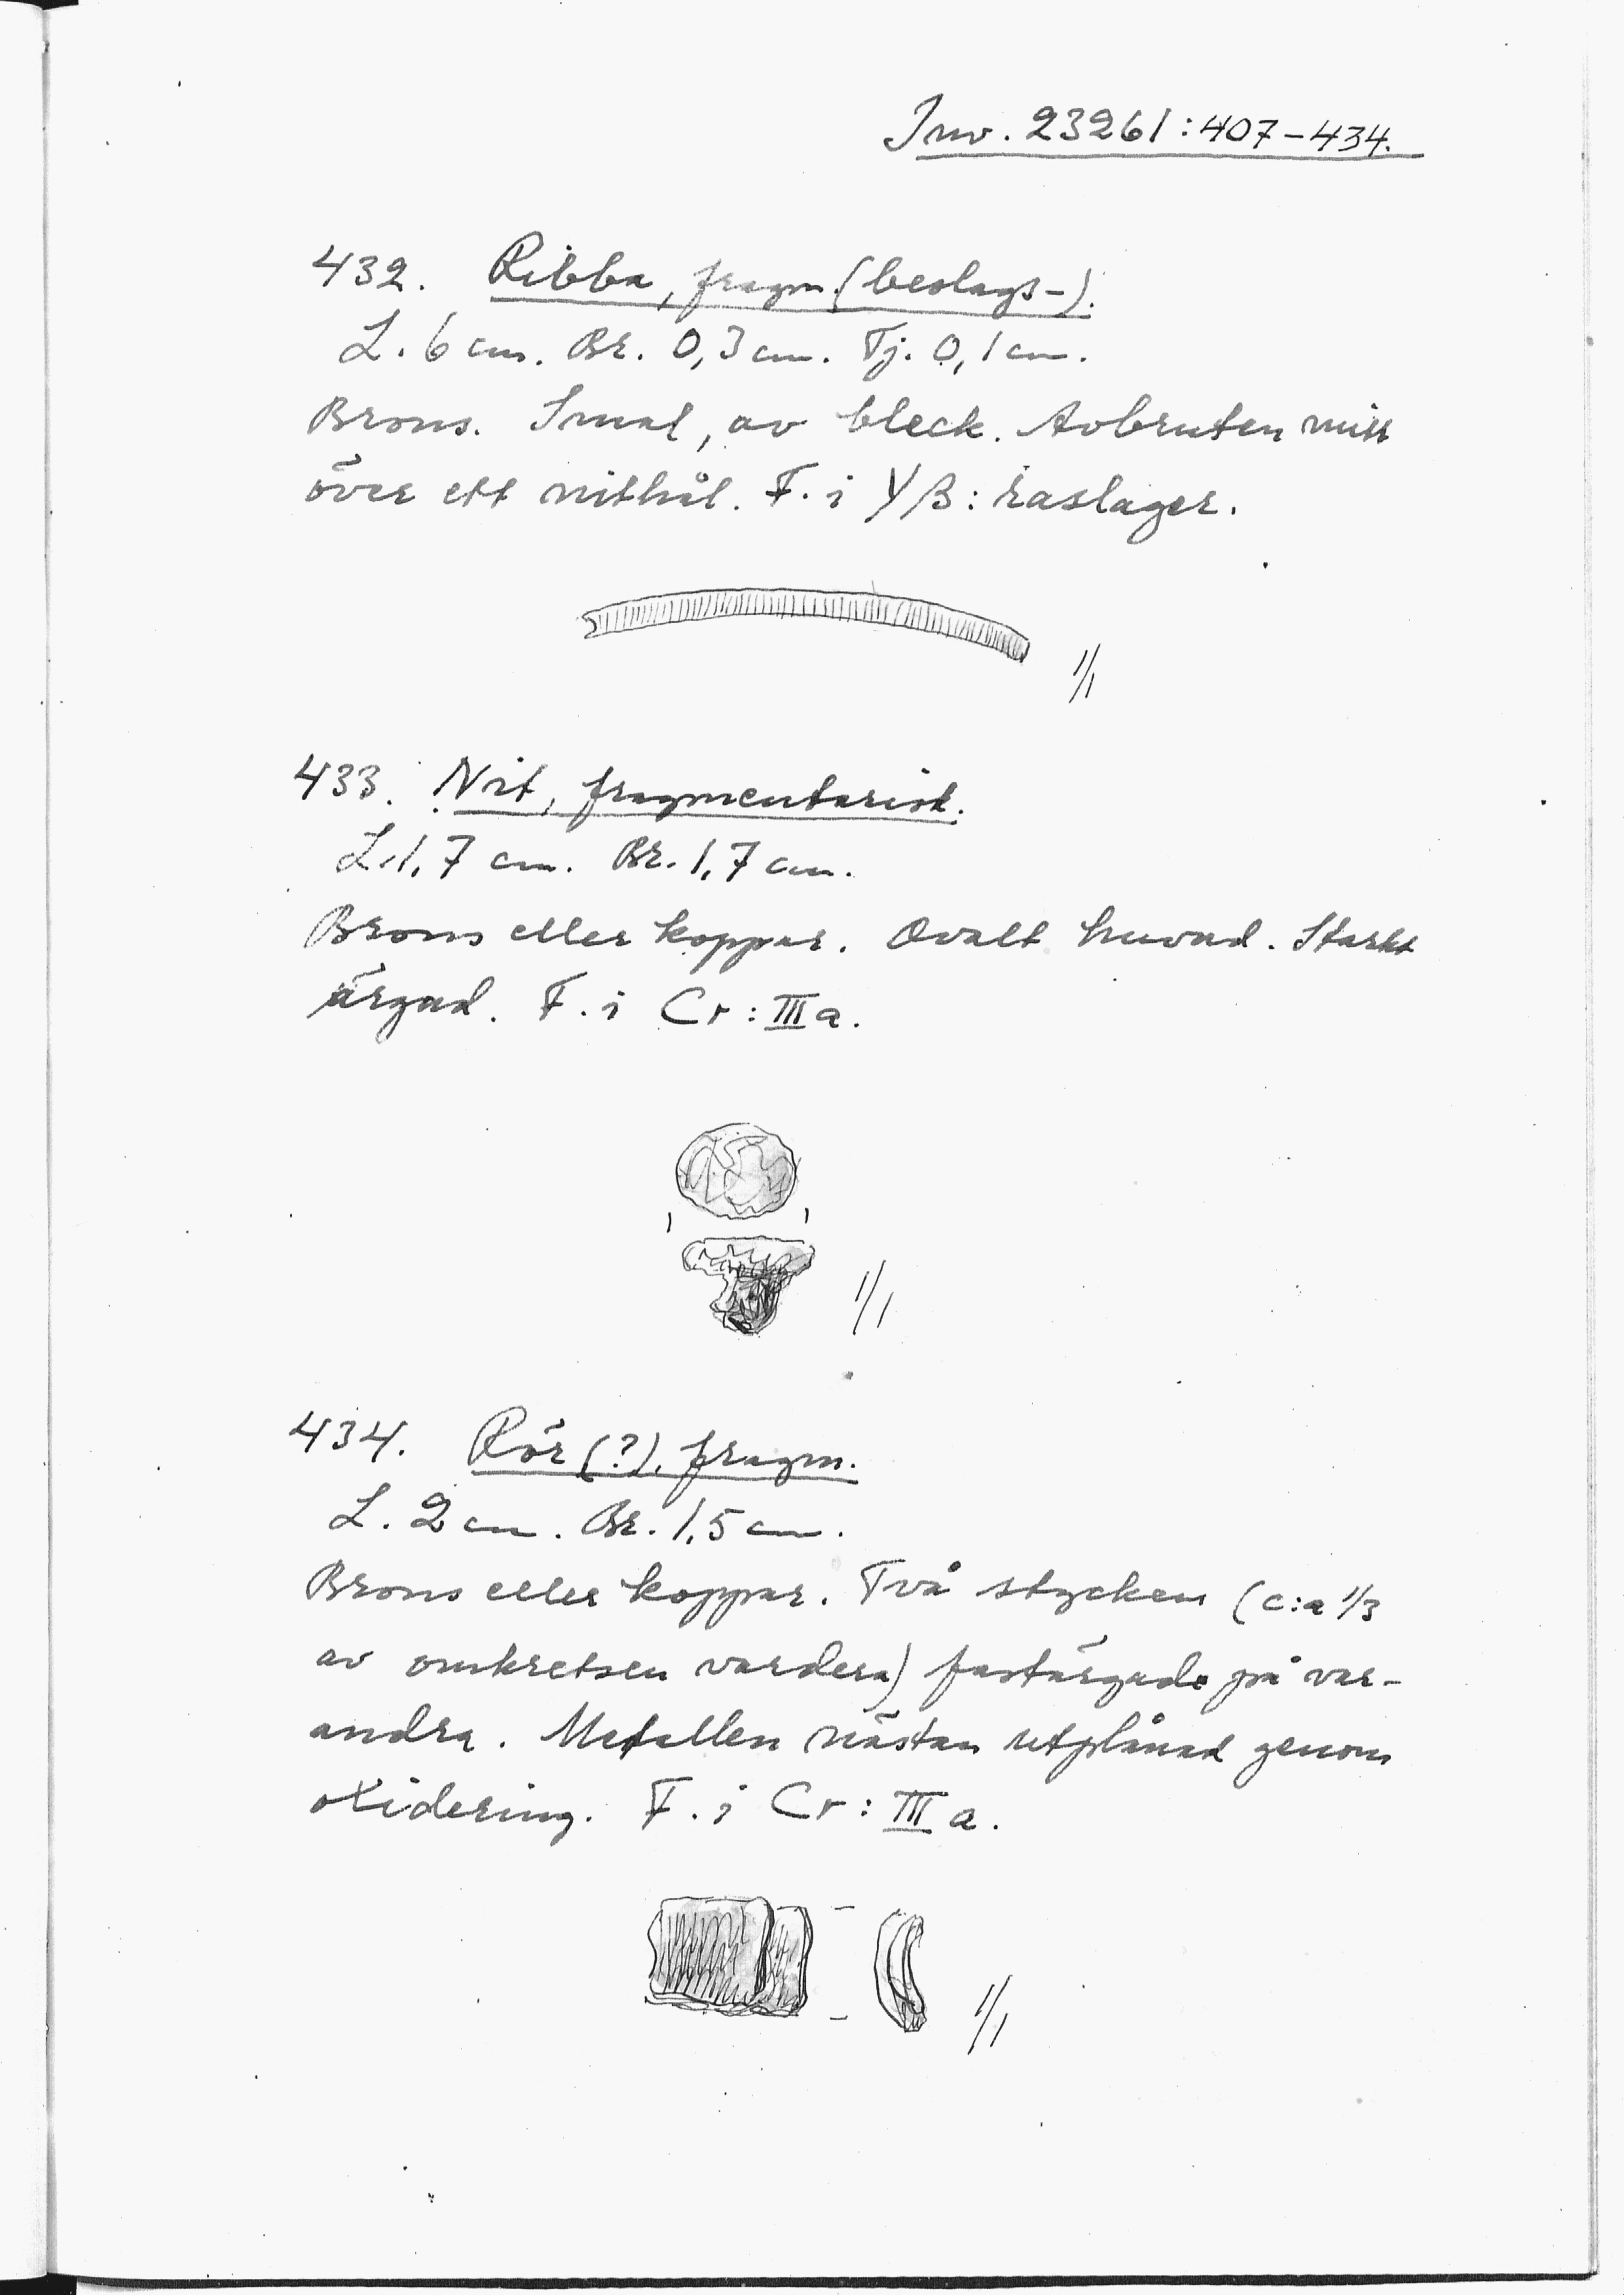 Inv. 23261:407-434.
432. Ribba, fragm. (beslags-).
L. 6 cm. Br. 0,3 cm. Tj. 0,1 cm.
Brons. Smal, av bleck. Avbruten mitt
över ett nithål. F. i Y/B: raslager.
1/1
433. Nit, fragmentarisk.
L. 1,7 cm. Br. 1,7 cm.
Brons eller koppar. Ovalt huvud. Starkt
ärgad. F. i Cr: III a.
1/1
434. Rör (?), fragm.
L. 2 cm. Br. 1,5 cm.
Brons eller koppar. Två stycken (c:a 1/3
av omkretsen vardera) fastärgade på var-
andra. Metallen nästan utplånad genom
oxidering. F. i Cr: III a.
1/1